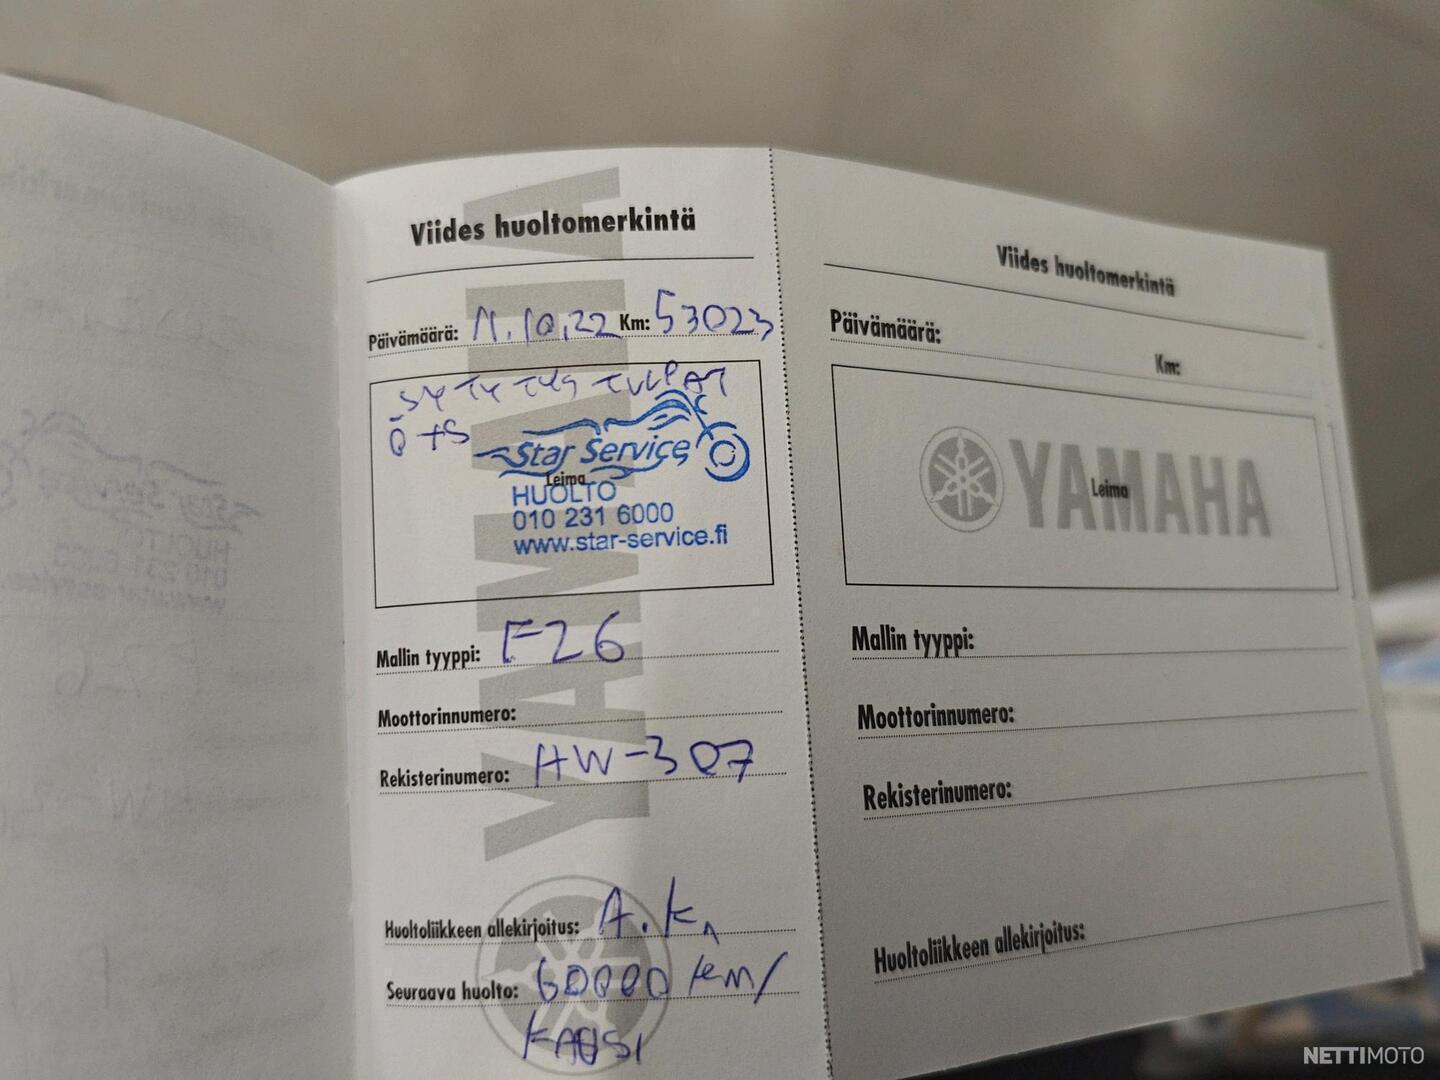 Viides huoltomerkintä
Päivämäärä: 11.10.22 Km: 53023
SYTYTYS TULPAT
Ö+S
Star Service
Leima
HUOLTO
010 231 6000
www.star-service.fi
Mallin tyyppi: FZ6
Moottorinnumero:
Rekisterinumero: HW-307
Huoltoliikkeen allekirjoitus: A.K.
Seuraava huolto: 60000 km/
KAUSI
YAMAHA
Viides huoltomerkintä
Päivämäärä:
Km:
YAMAHA
Leima
Mallin tyyppi:
Moottorinnumero:
Rekisterinumero:
Huoltoliikkeen allekirjoitus:
NETTIMOTO